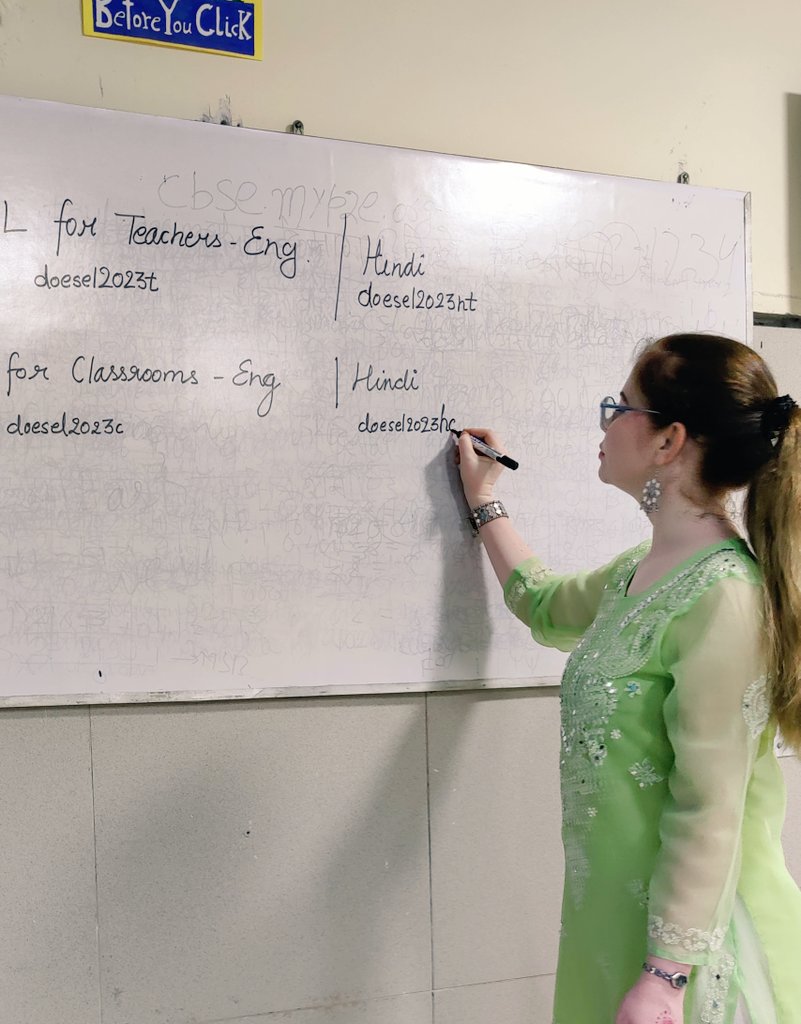 Before You Click
CBSE
L for Teachers - Eng. | Hindi
doesel2023t
doesel2023ht
for Classrooms - Eng | Hindi
doesel2023c
doesel2023hc